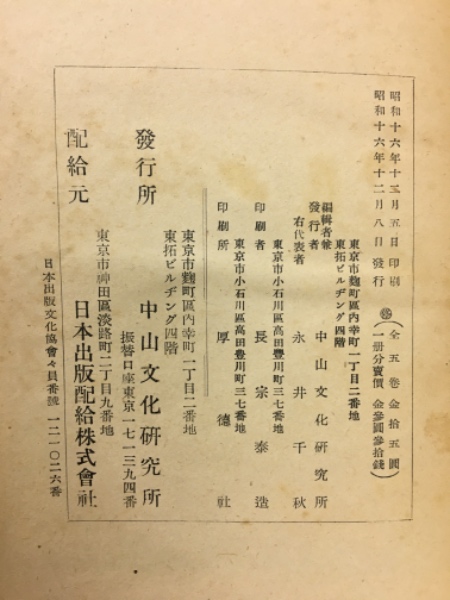 昭和十六年十二月五日 印刷
昭和十六年十二月八日 發行
全五卷 金拾五圓
一册分賣價 金參圓參拾錢
東京市麴町區內幸町一丁目二番地
東拓ビルヂング四階
編輯者兼
發行者 中山文化硏究所
右代表者 永井千秋
東京市小石川區高田豊川町三七番地
印刷者 長宗泰造
東京市小石川區高田豊川町三七番地
印刷所 厚德社
東京市麴町區內幸町一丁目二番地
東拓ビルヂング四階
發行所 中山文化硏究所
振替口座東京一七一三九四番
東京市神田區淡路町二丁目九番地
配給元 日本出版配給株式會社
日本出版文化協會々員番號 一二一〇二六番